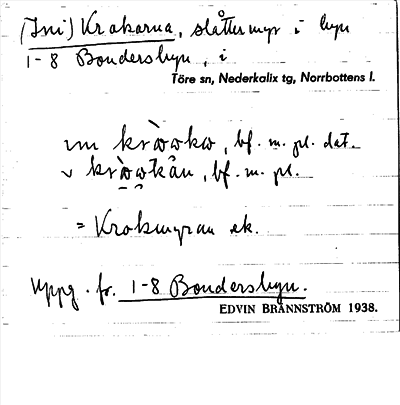 (Ini) Krokarna, slåttermyr i byn
1-8 Bondersbyn, i
Töre sn, Nederkalix tg, Norrbottens l.
bf. m. pl. dat.
bf. m. pl.
= Krokmyran ek.
Uppg. fr. 1-8 Bondersbyn.
EDVIN BRÄNNSTRÖM 1938.